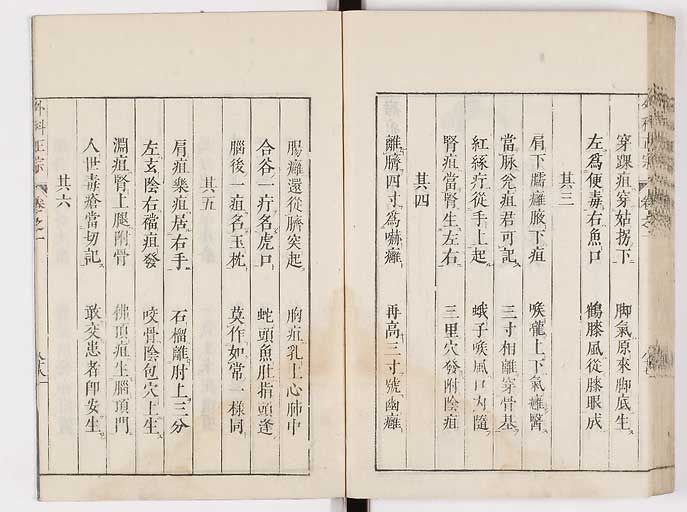 穿踝疽穿姑拐下　脚氣原來脚底生
左爲便毒右魚口　鶴膝風從膝眼成
其三
肩下臑癰腋下疽　喉龍上下氣癰醫
當脉瓮疽君可記　三寸相離穿骨基
紅絲疔從手上起　蛾子喉風口内隨
腎疽當腎生左右　三里穴發附陰疽
其四
離臍四寸爲嚇癰　再高三寸號幽癰
腸癰還從臍突起　胸疽乳上心肺中
合谷一疔名虎口　蛇頭魚肚指頭逢
腦後一疽名玉枕　莫作如常一樣同
其五
肩疽樂疽居右手　石榴離肘上三分
左玄陰右襠疽發　咬骨陰包穴上生
淵疽腎上腿附骨　佛頂疽生腦頂門
人世毒瘡當切記　敢交患者即安生
其六
外科正宗　卷之一